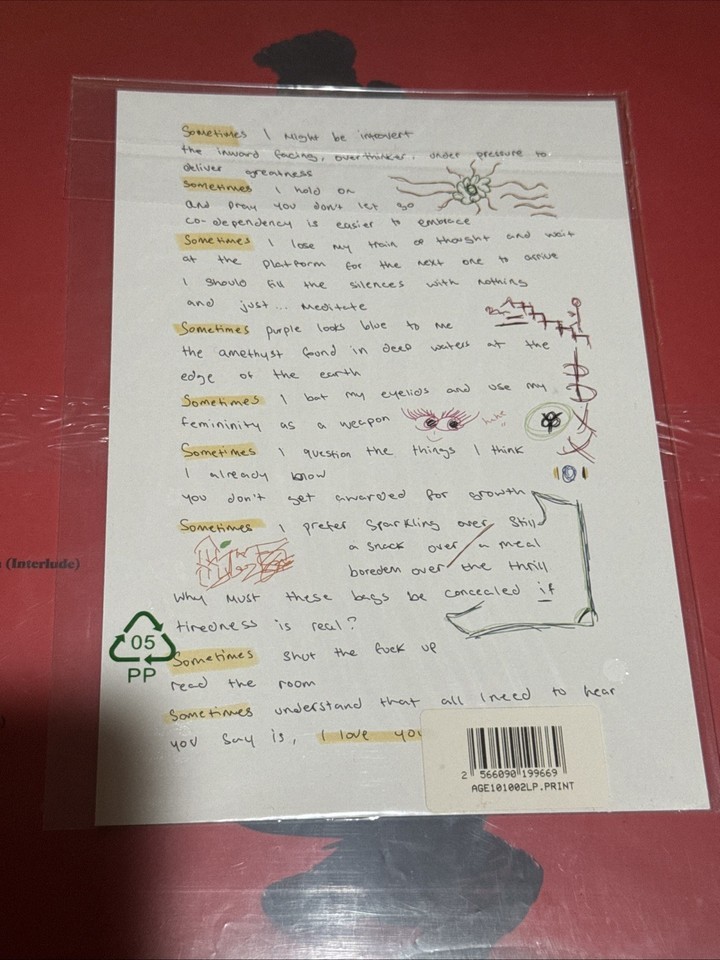 Sometimes I might be introvert
the inward facing, overthinker, under pressure to
deliver greatness
Sometimes I hold on
and pray you don't let go
co-dependency is easier to embrace
Sometimes I lose my train of thought and wait
at the platform for the next one to arrive
I should fill the silences with nothing
and just... meditate
Sometimes purple looks blue to me
the amethyst found in deep waters at the
edge of the earth
Sometimes I bat my eyelids and use my
femininity as a weapon
Sometimes I question the things I think
I already know
You don't get awarded for growth
Sometimes I prefer sparkling over still
a snack over a meal
boredem over the thrill
Why must these bags be concealed if
tiredness is real?
Sometimes shut the fuck up
read the room
Sometimes understand that all I need to hear
you say is, I love you
(Interlude)
05
PP
2 566090 199669
AGE101002LP.PRINT